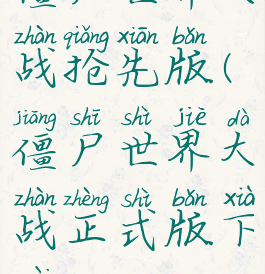 zhàn qiǎng xiān bǎn
战抢先版(
jiāng shī shì jiè dà
僵尸世界大
zhàn zhèng shì bǎn xià
战正式版下